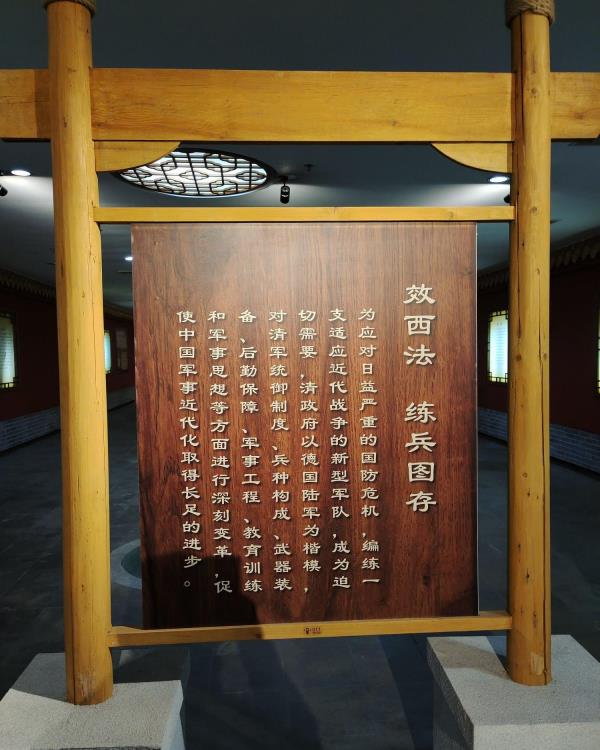 效西法 练兵图存
为应对日益严重的国防危机，编练一
支适应近代战争的新型军队，成为迫
切需要，清政府以德国陆军为楷模，
对清军统御制度、兵种构成、武器装
备、后勤保障、军事工程、教育训练
和军事思想等方面进行深刻变革，促
使中国军事近代化取得长足的进步。